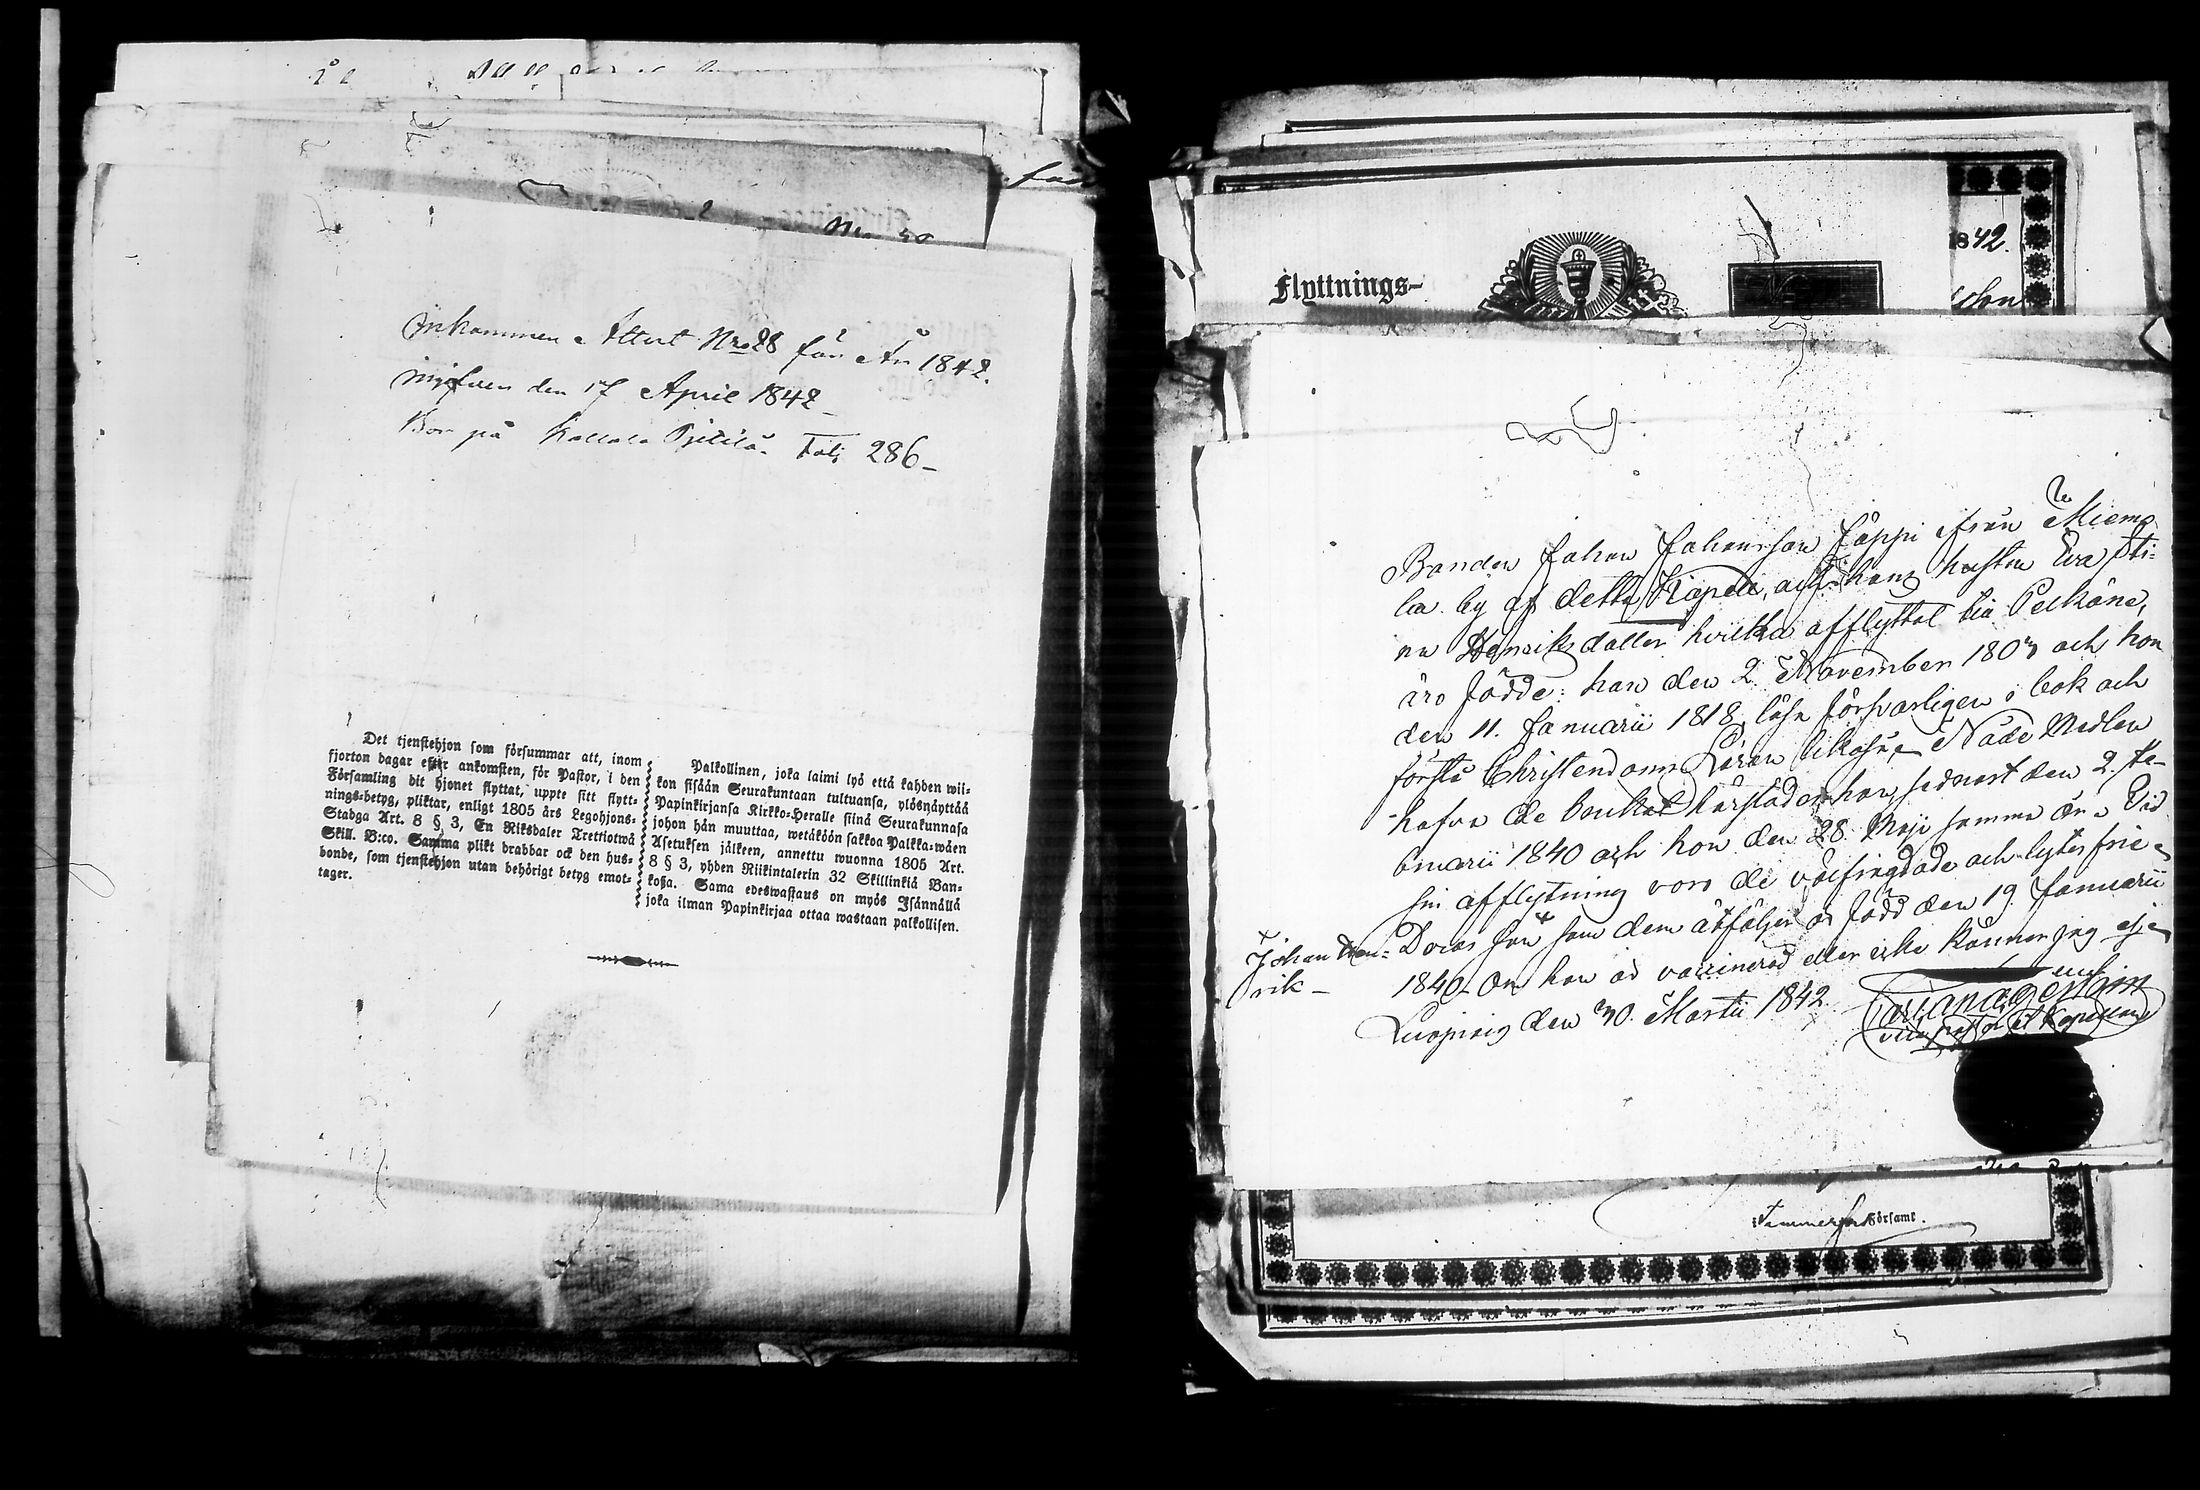 Inkommen Attest Nro 28 för År 1842.
ingifven den 17 April 1842
Bor på Kollola Pjetilä. Fol: 286
Det tjenstehjon som försummar att, inom
fjorton dagar efter ankomsten, för Pastor, i den
Församling dit hjonet flyttat, uppte sitt flytt-
nings-betyg, pliktar, enligt 1805 års Legohjons-
Stadga Art. 8 § 3, En Riksdaler Trettiotwå
Skill. B:co. Samma plikt drabbar ock den hus-
bonde, som tjenstehjon utan behörigt betyg emot-
tager.
Palkollinen, joka laimi lyö että kahden wii-
kon sisään Seurakuntaan tultuansa, ylösnäyttää
Papinkirjansa Kirkko-Heralle siinä Seurakunnasa
johon hän muuttaa, wetäköön sakkoa Palkka-wäen
Asetuksen jälkeen, annettu wuonna 1805 Art.
8 § 3, yhden Riikintalerin 32 Skillinkiä Ban-
koßa. Sama edeswastaus on myös Isännällä
joka ilman Papinkirjaa ottaa wastaan palkollisen.
1842.
Flyttnings-
Bonden Johan Johansson Jäppi från Miemo
la by af detta Kapell, och hans hustru Eva Sti-
na Henriksdotter hvilka afflyttat till Pelkäne,
äro födde: han den 2 November 1807 och hon
den 11. Januarii 1818, läsa försvarligen i bok och
första Christendoms Läran likaså; Nåde Medlen
hafva de brukat härstädes han sednast den 2. Fe-
bruarii 1840 och hon den 28 Maji samma år. Vid
sin afflyttning voro de välfrejdade och lytesfrie
Johan Hen- Deras son som dem åtföljer är född den 19. Januarii
rik - 1840. Om han är vaccinerad eller icke känner jag ej
Luopiois den 30. Martii 1842.
Tammerfors Församl.